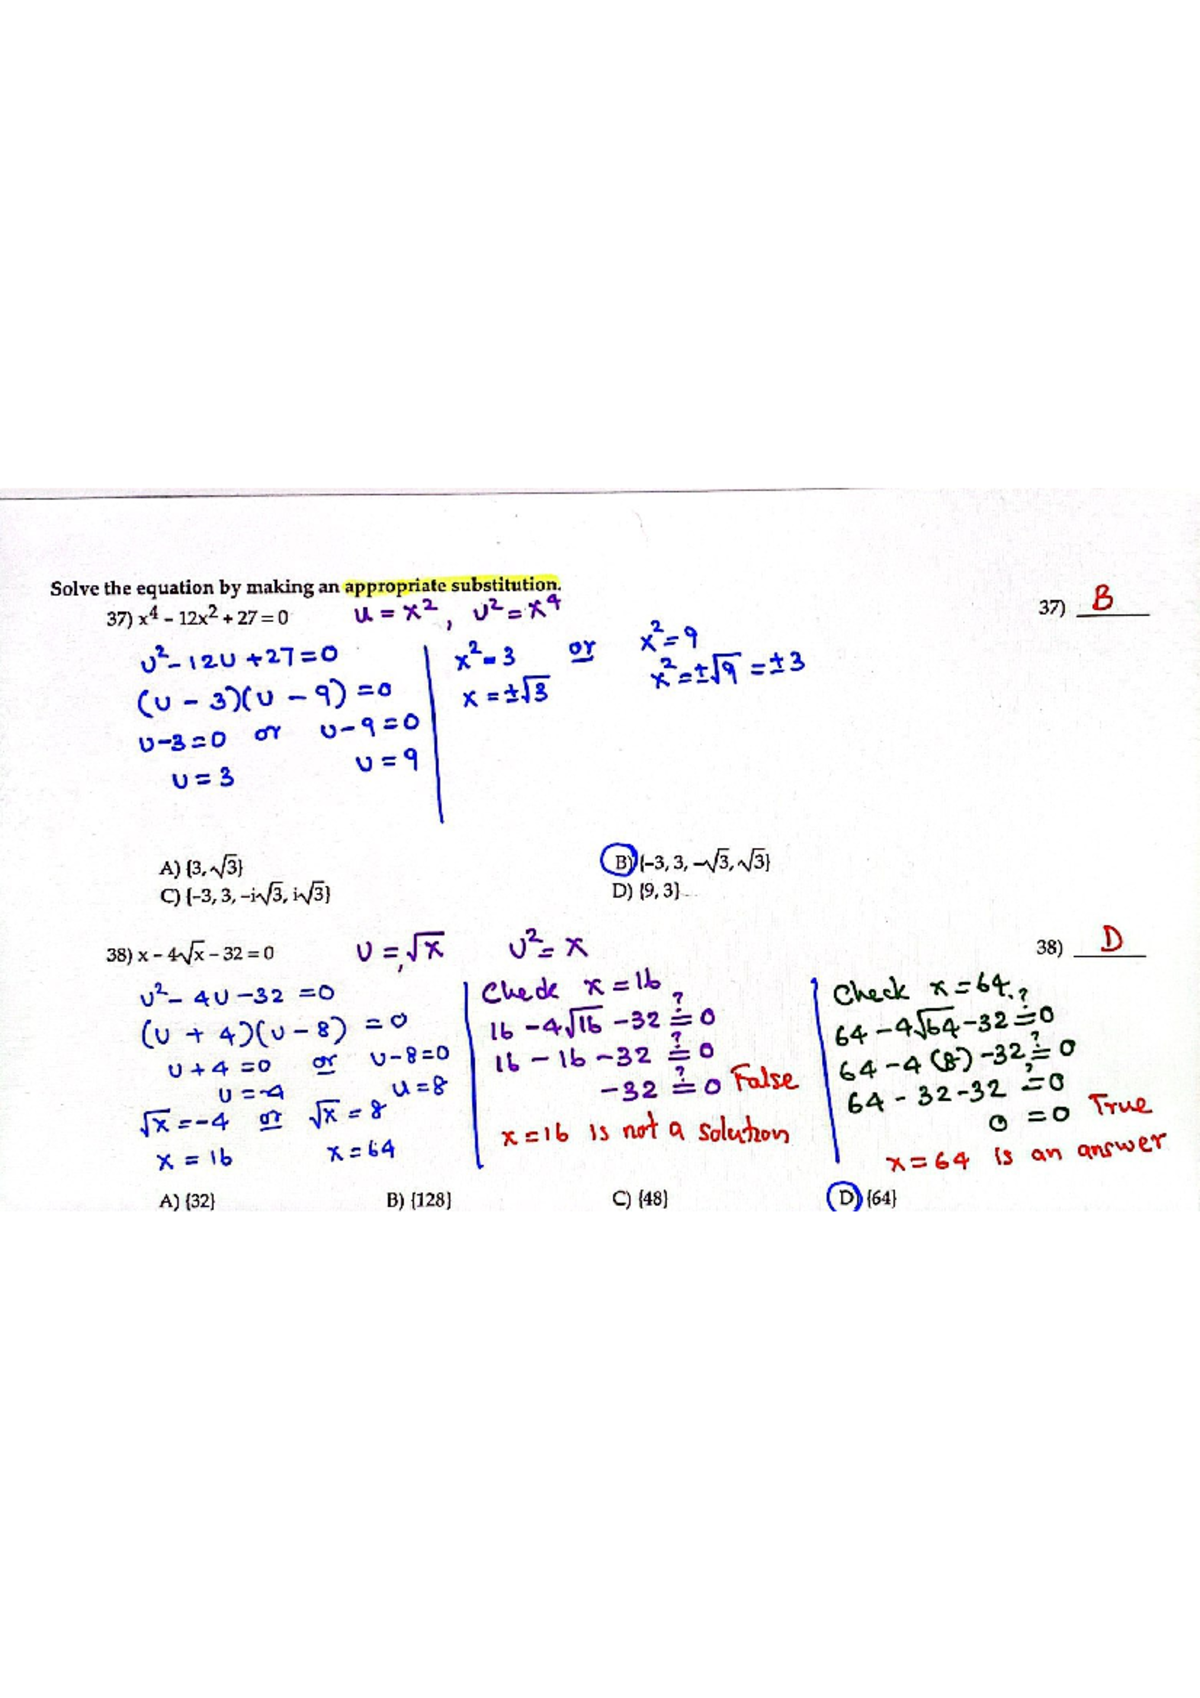 Solve the equation by making an appropriate substitution.
37) x⁴ - 12x² + 27 = 0 u = x² , u² = x⁴ 37) B
u² - 12u + 27 = 0
(u - 3)(u - 9) = 0
u - 3 = 0 or u - 9 = 0
u = 3 u = 9
x² = 3 or x² = 9
x = ±√3 x² = ±√9 = ±3
A) {3, √3} B) {-3, 3, -√3, √3}
C) {-3, 3, -i√3, i√3} D) {9, 3}
38) x - 4√x - 32 = 0 u = √x , u² = x 38) D
u² - 4u - 32 = 0
(u + 4)(u - 8) = 0
u + 4 = 0 or u - 8 = 0
u = -4 u = 8
√x = -4 or √x = 8
x = 16 x = 64
Check x = 16
16 - 4√16 - 32 ≟ 0
16 - 16 - 32 ≟ 0
-32 ≟ 0 False
x = 16 is not a solution
Check x = 64
64 - 4√64 - 32 ≟ 0
64 - 4(8) - 32 ≟ 0
64 - 32 - 32 ≟ 0
0 = 0 True
x = 64 is an answer
A) {32} B) {128} C) {48} D) {64}